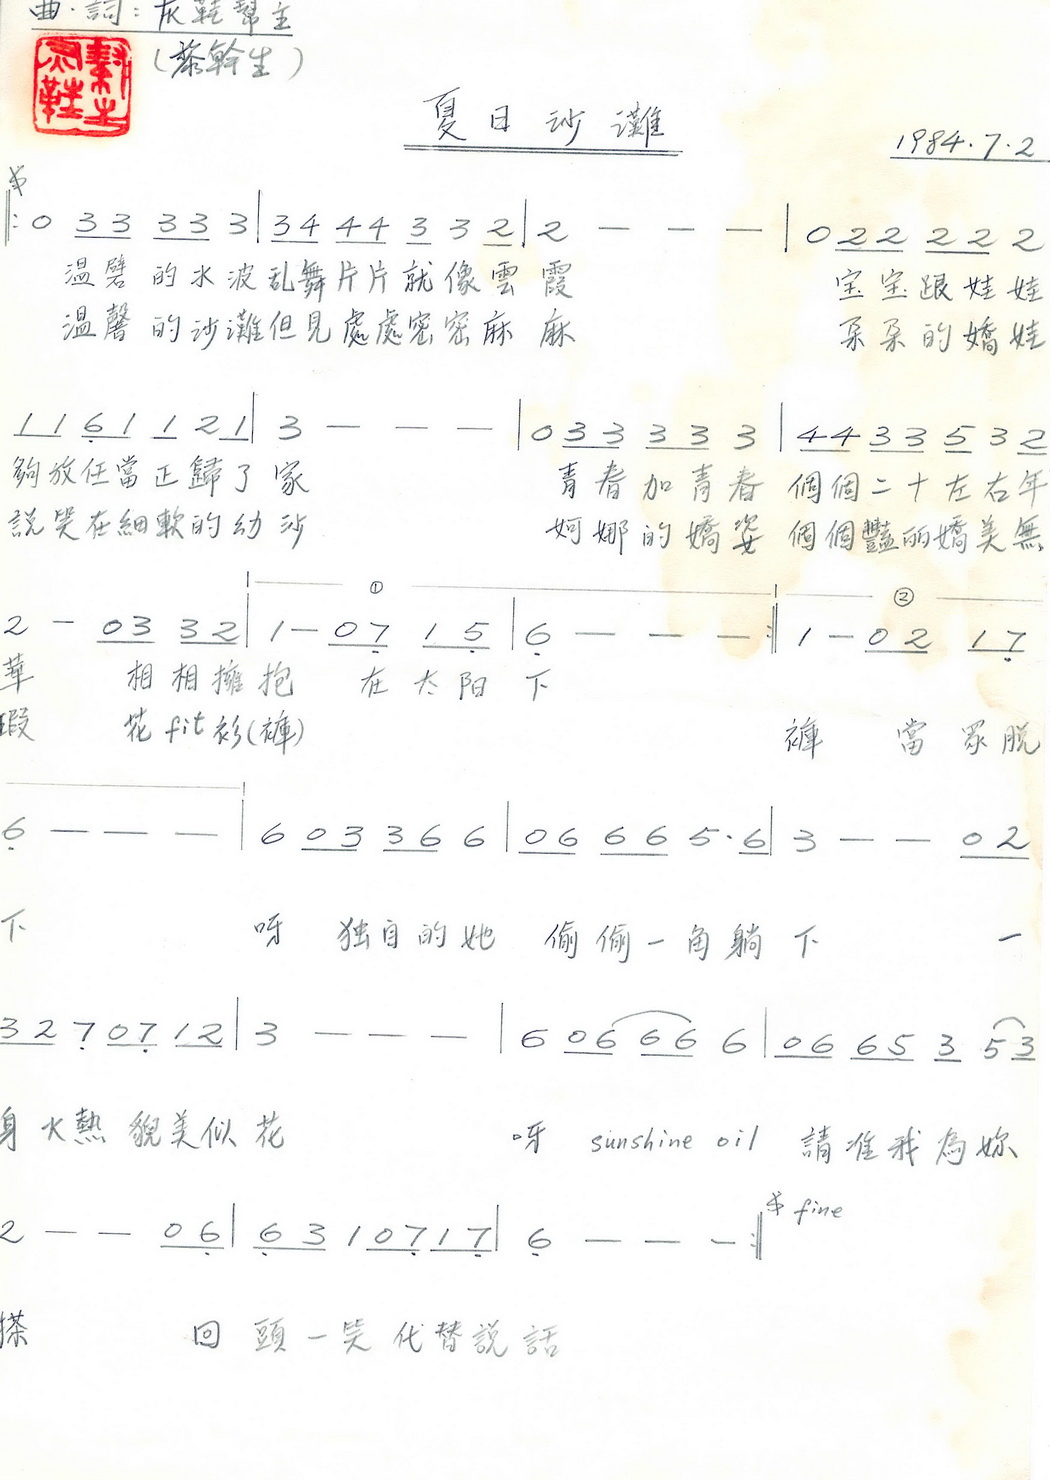 曲·詞：灰鞋幫主
（黎幹生）
夏日沙灘
1984.7.2
0 33 33 3 | 34 44 3 3 2 | 2 — — — | 0 22 22 2
温馨的水波乱舞片片就像雲霞 宝宝跟娃娃
温馨的沙灘但見處處密密麻麻 朶朶的嬌娃
1 1 6 1 1 2 1 | 3 — — — | 0 33 33 3 | 44 33 5 3 2
夠放任當正歸了家 青春加青春 個個二十左右年
說笑在細軟的幼沙 婀娜的嬌姿 個個豔丽嬌美無
① ②
2 — 03 32 | 1 — 07 15 | 6 — — — :| 1 — 02 17
華 相相擁抱 在太阳下
瑕 花fit衫(褲) 褲 當眾脫
6 — — — | 6 03 36 6 | 06 66 5·6 | 3 — — 02
下 呀 独自的她 偷偷一角躺下 一
3 2 7 07 12 | 3 — — — | 6 06 66 6 | 06 65 3 53
身火熱貌美似花 呀 sunshine oil 請准我為妳
2 — — 06 | 6 3 1 07 17 | 6 — — — :| fine
搽 回頭一笑代替說話